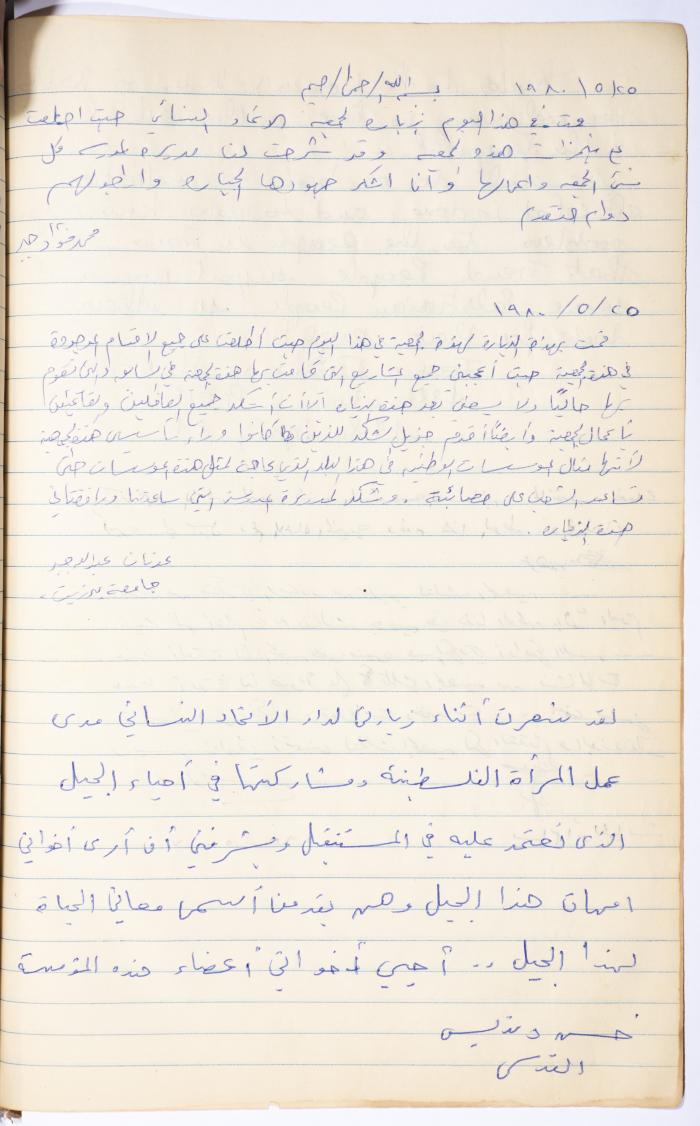 ١٩٨٠/٥/٢٥ بسم الله الرحمن الرحيم
قمت في هذا اليوم بزيارة لجمعية الاتحاد النسائي حيث اطلعت
على منجزات هذه الجمعية وقد شرحت لنا مديرة المدرسة كل
الجمعية واعمالها وأنا اشكر جهودها الجبارة وارجو لهم
دوام التقدم
محمد فؤاد جبر
١٩٨٠/٥/٢٥
قمت بهذه الزيارة لهذه الجمعية في هذا اليوم حيث أطلعت على جميع الاقسام الموجودة
في هذه الجمعية حيث أعجبني جميع المشاريع التي قامت بها هذه الجمعية في السابق والتي تقوم
بها حاليًا ولا يسعني بعد هذه الزيارة الا أن أشكر جميع العاملين والعاملات
بأعمال الجمعية وأيضًا أقدم جزيل الشكر للذين كانوا وراء تأسيس هذه الجمعية
لأنها مثال المؤسسات الوطنية في هذا البلد الذي بحاجة لمثل هذه المؤسسات حتى
تساعد الشعب على مصائبه. وشكر لمديرة المدرسة التي ساعدتنا ورافقتنا في
هذه الزيارة.
عدنان
جامعة بيرزيت.
لقد شعرت أثناء زيارتي لدار الأتحاد النسائي مدى
عمل المرأة الفلسطينة ومشاركتها في أحياء الجيل
الذى نعتمد عليه في المستقبل ويشرفني أن أرى أخواتي
امهات هذا الجيل وهن يقدمن أسمى معاني الحياة
لهذا الجيل .. أحيي أخواتي أعضاء هذه المؤسسة
القدس